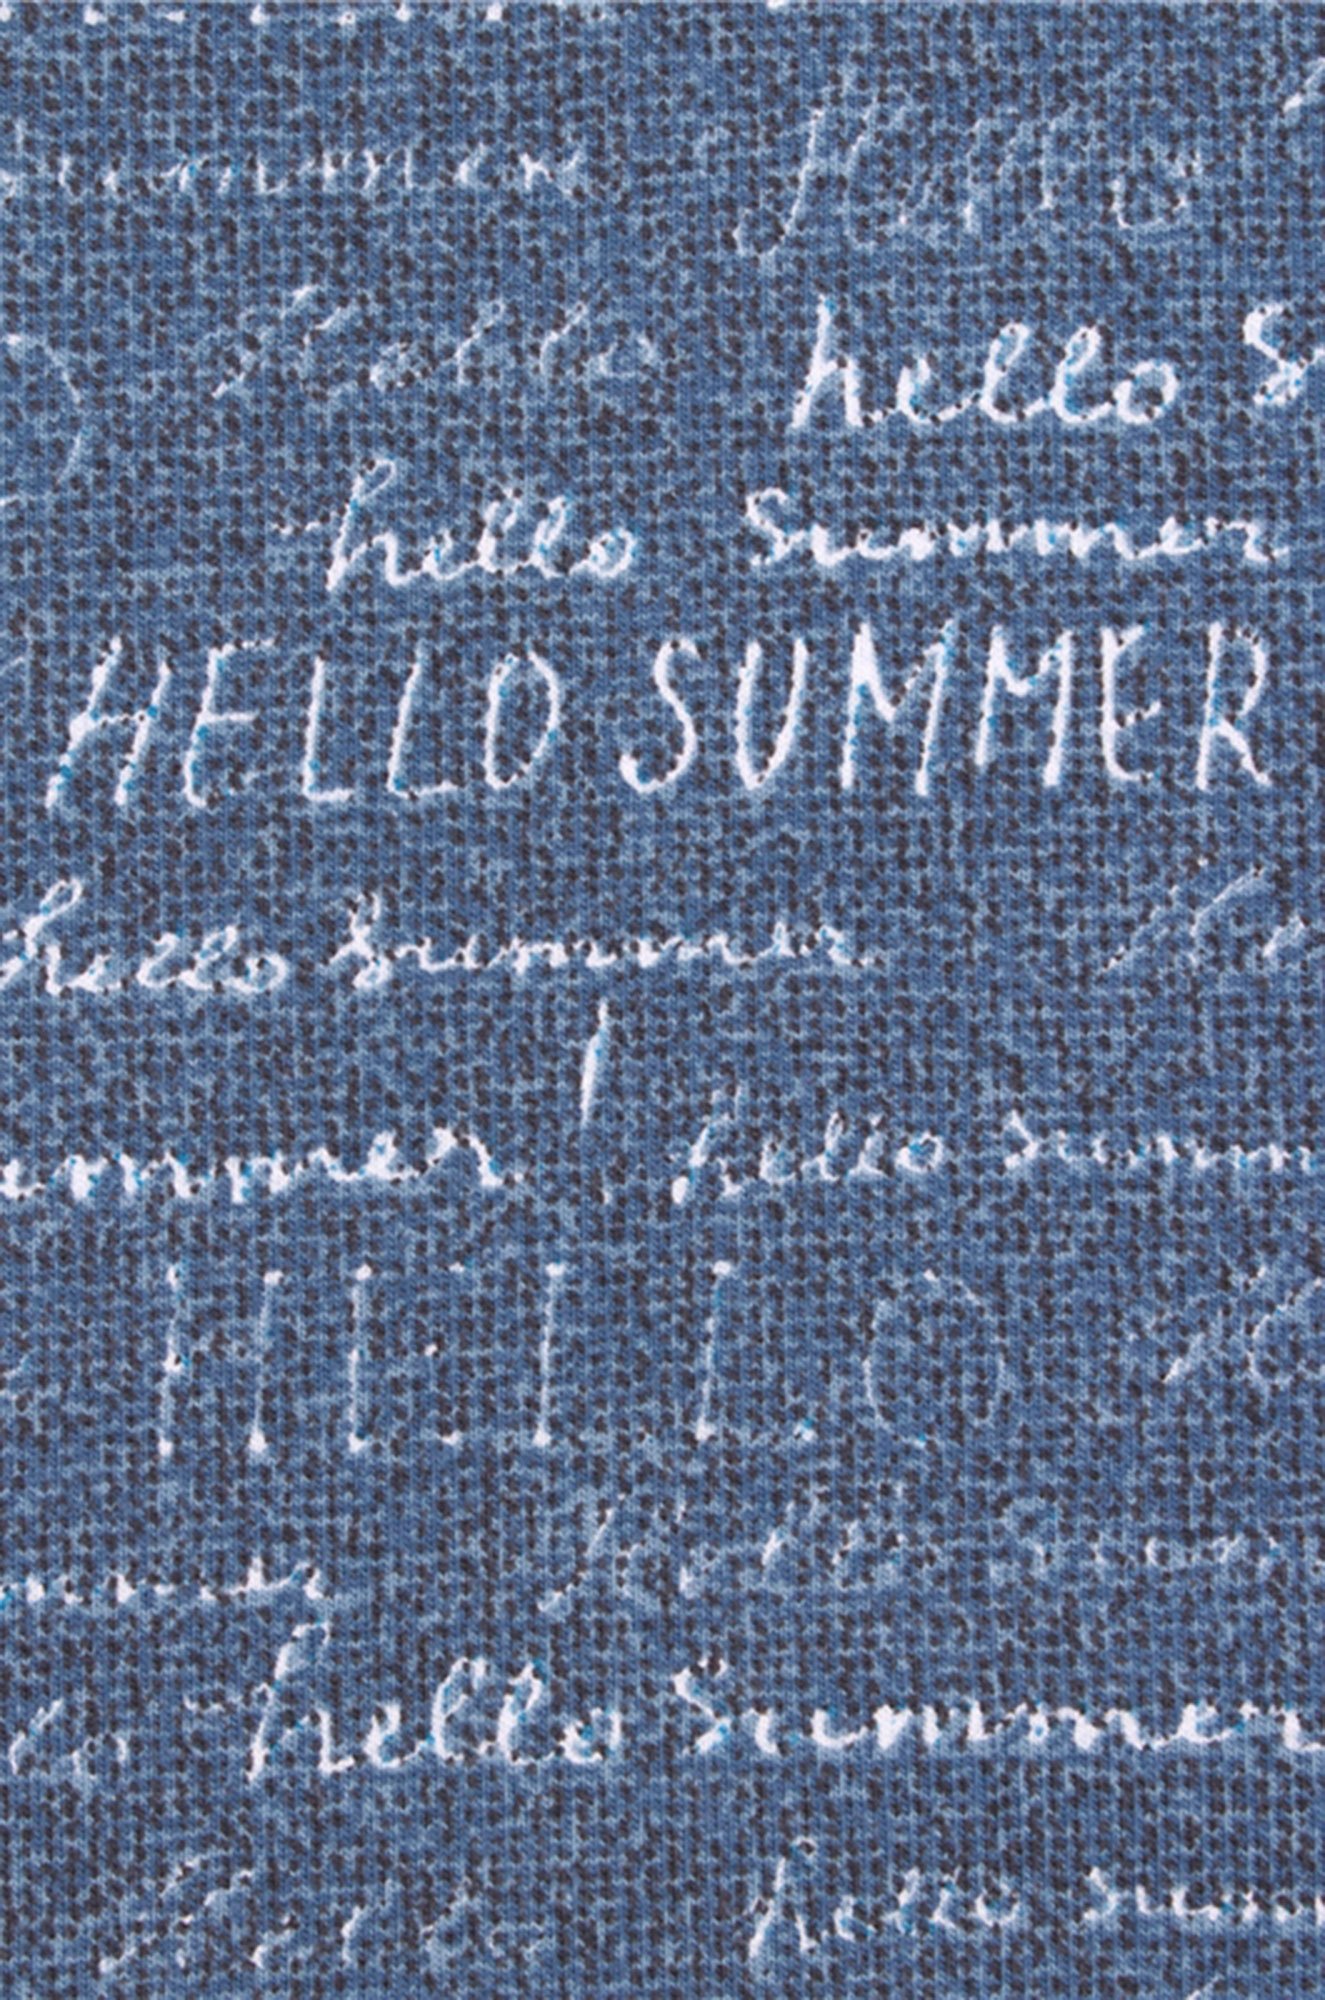 Hello
Hello
hello
hello Summer
HELLO SUMMER
hello Summer
hello summ
HELLO
hello
hello Summer
hello summ